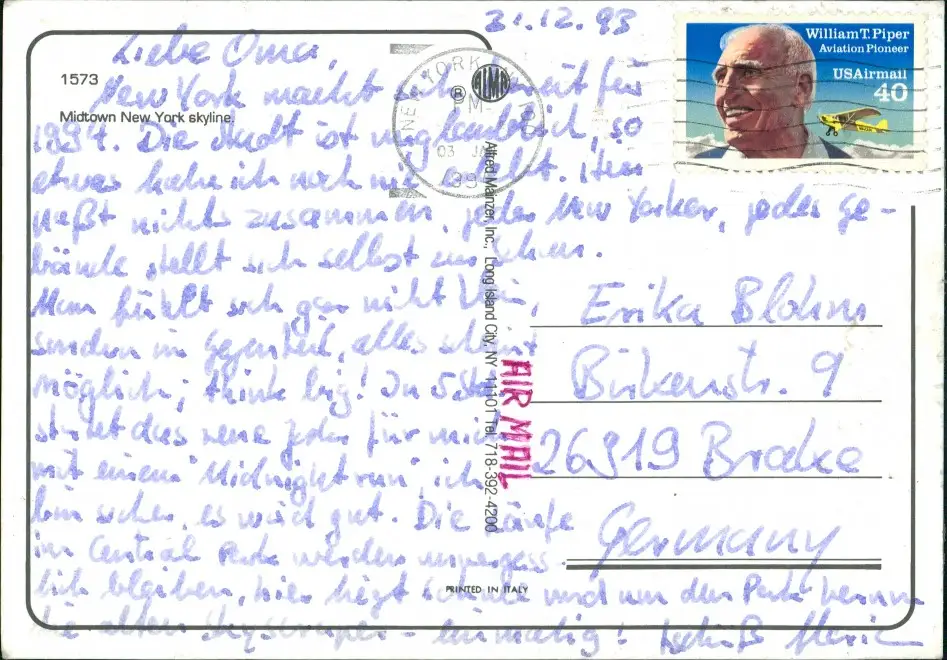 31.12.93
Liebe Oma,
New York macht sich bereit für
1994. Die Stadt ist unglaublich, so
etwas habe ich noch nie erlebt. Hier
paßt nichts zusammen, jeder New Yorker, jedes Ge-
bäude stellt sich selbst zur Schau.
Man fühlt sich gar nicht klein,
sondern im Gegenteil, alles scheint
möglich; think big! In 5 Std.
startet das neue Jahr für mich
mit einem Midnight run, ich
bin sicher, es wird gut. Die Läufe
im Central Park werden unvergess-
lich bleiben, hier liegt Schnee und um den Park herum
die alten Skyscraper - einmalig!
1573
Midtown New York skyline.
NEW YORK
PM
03 JAN
Alfred Mainzer, Inc., Long Island City, NY 11101 Tel. 718-392-4200
AIR MAIL
PRINTED IN ITALY
William T. Piper
Aviation Pioneer
USAirmail
40
Erika Blohm
Birkenstr. 9
26919 Brake
Germany